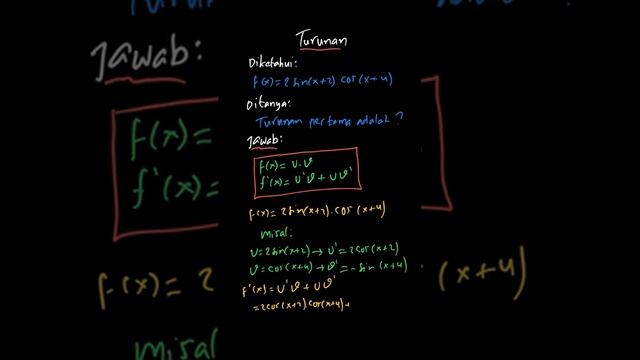 Turunan
Diketahui:
f(x) = 2 sin(x+2) . cos(x+4)
Ditanya:
Turunan pertama adalah ?
Jawab:
f(x) = u.v
f'(x) = u'v + uv'
f(x) = 2 sin(x+2) . cos(x+4)
misal:
u = 2 sin(x+2) → u' = 2 cos(x+2)
v = cos(x+4) → v' = - sin(x+4)
f'(x) = u'v + uv'
= 2 cos(x+2) . cos(x+4) +
Jawab:
f(x) =
f'(x) =
f(x) = 2
. (x+4)
misal